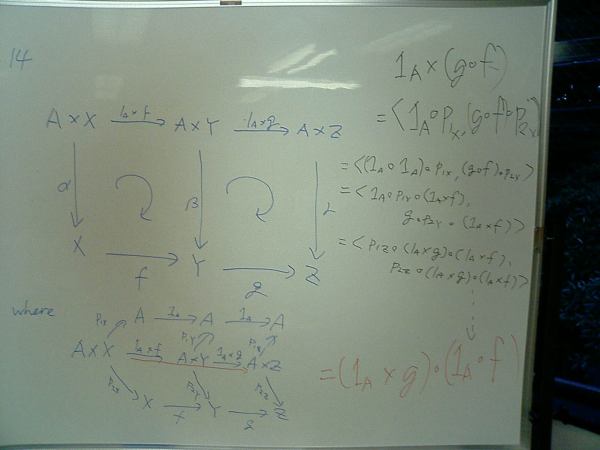 14
A × X —1_A×f→ A × Y —1_A×g→ A × Z
α β
X —f→ Y —g→ Z
where
A —1_A→ A —1_A→ A
p_1X p_1Y p_1Z
A × X —1_A×f→ A × Y —1_A×g→ A × Z
p_2X p_2Y p_2Z
X —f→ Y —g→ Z
1_A × (g∘f)
= <1_A ∘ p_1X, (g∘f)∘p_2X>
= <(1_A ∘ 1_A)∘p_1X, (g∘f)∘p_2X>
= <1_A∘p_1Y∘(1_A×f),
g∘p_2Y∘(1_A×f)>
= <p_1Z∘(1_A×g)∘(1_A×f),
p_2Z∘(1_A×g)∘(1_A×f)>
= (1_A × g)∘(1_A ∘ f)